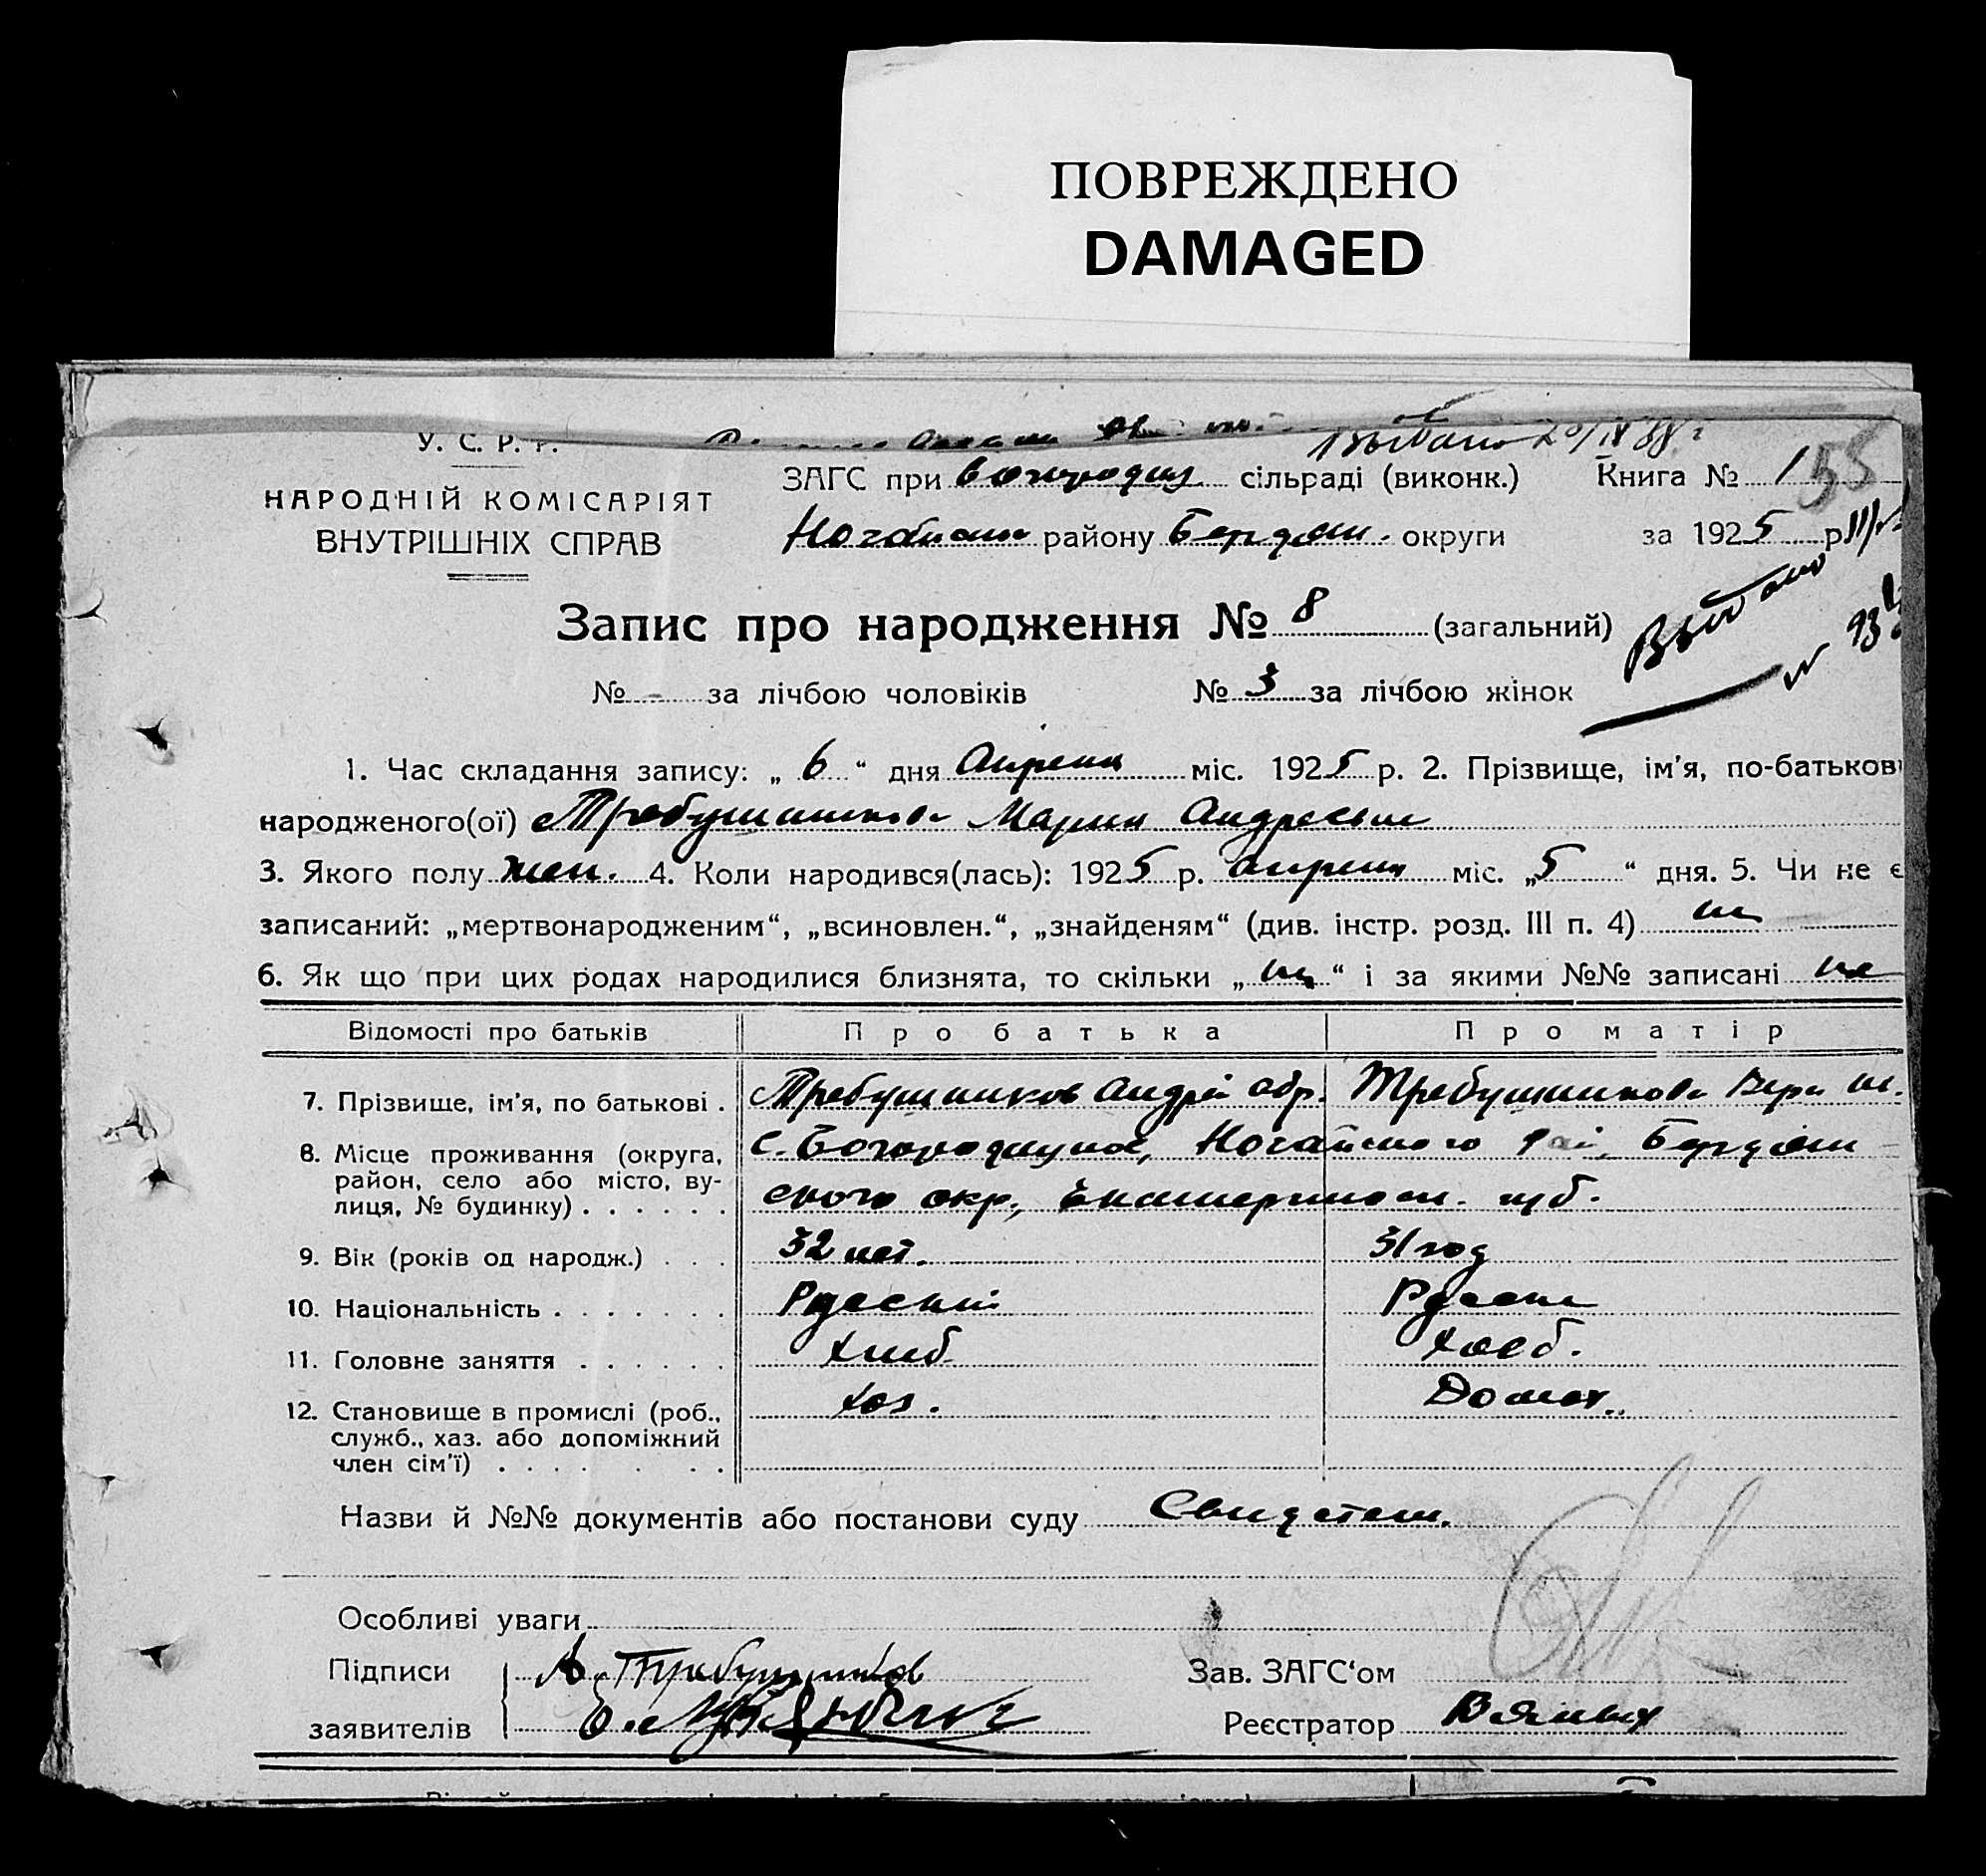 ПОВРЕЖДЕНО
DAMAGED
У. С. Р. Р.
Выдано 20/IV 88 г
ЗАГС при Богородиц. сільраді (виконк.) Книга № 1
НАРОДНІЙ КОМІСАРІЯТ
ВНУТРІШНІХ СПРАВ
Ногайск району Бердян. округи за 1925 р.
Запис про народження № 8 (загальний)
Выдано
№ - за лічбою чоловіків № 3 за лічбою жінок
1. Час складання запису: „ 6 “ дня Апреля міс. 1925 р. 2. Прізвище, ім'я, по-батькові
народженого(ої) Требушникова Мария Андреевн
3. Якого полу жен. 4. Коли народився(лась): 1925 р. апреля міс. „ 5 “ дня. 5. Чи не є
записаний: „мертвонародженим“, „всиновлен.“, „знайденям“ (див. інстр. розд. III п. 4)
6. Як що при цих родах народилися близнята, то скільки „ “ і за якими №№ записані
Відомості про батьків Про батька Про матір
7. Прізвище, ім'я, по батькові . Требушников Андрей Требушникова Вера
8. Місце проживання (округа, район, село або місто, вулиця, № будинку) . . . . . . с. Богородицкое, Ногайского рай, Бердян
ского окр., Екатеринос. губ.
9. Вік (років од народж.) . . . 32 лет. 31 год
10. Національність . . . . . . . Русский Русская
11. Головне заняття . . . . . . Хлеб Хлеб.
12. Становище в промислі (роб., служб., хаз. або допоміжний член сім'ї) . . . . . . . Хоз. Домох.
Назви й №№ документів або постанови суду Свидетел.
Особливі уваги
Підписи А. Требушников Зав. ЗАГС'ом
заявителів Реєстратор Вялых